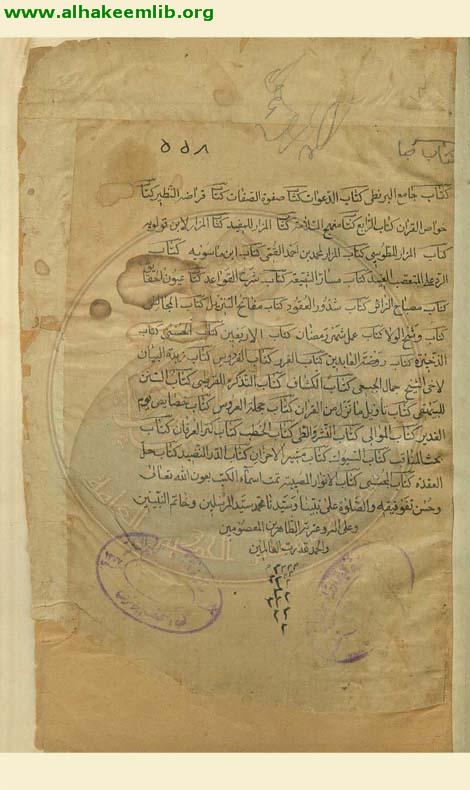 www.alhakeemlib.org
كتاب
٥٥٨
كتاب جامع البزنطي كتاب الدعوات كتاب صفوة الصفات كتاب قراضة النظير كتاب
خواص القران كتاب كتاب المزار للمفيد كتاب المزار لابن قولويه
كتاب المزار للطوسي كتاب المزار لمحمد بن احمد القمي كتاب ابن ماسويه كتاب
الرد على المتعصب العنيد كتاب مسار الشيعة كتاب شرح القواعد كتاب عيون الحقايق
كتاب مصباح الزائر كتاب شذور العقود كتاب مفاتح كتاب المجالس
كتاب كتاب عمل شهر رمضان كتاب الاربعين كتاب الحسنى كتاب
الذخيرة كتاب روضة العابدين كتاب الفرج كتاب الفردوس كتاب زبدة البيان
لاخي الشيخ جمال الجبعي كتاب الكشاف كتاب التذكرة للقرطبي كتاب السنن
للبيهقي كتاب تاويل ما نزل من القران كتاب مجلة العروس كتاب خصايص يوم
الغدير كتاب الموالي كتاب كتاب الخطب كتاب كنز العرفان كتاب
كتاب كتاب مثير الاحزان كتاب الدر النضيد كتاب حل
العقدة كتاب المجتبى كتاب الانوار المضيئة تمت اسماء الكتب بعون الله تعالى
وحسن توفيقه والصلوة على نبينا وسيدنا محمد سيد المرسلين وخاتم النبيين
وعلى اله وعترته الطاهرين المعصومين
والحمد لله رب العالمين